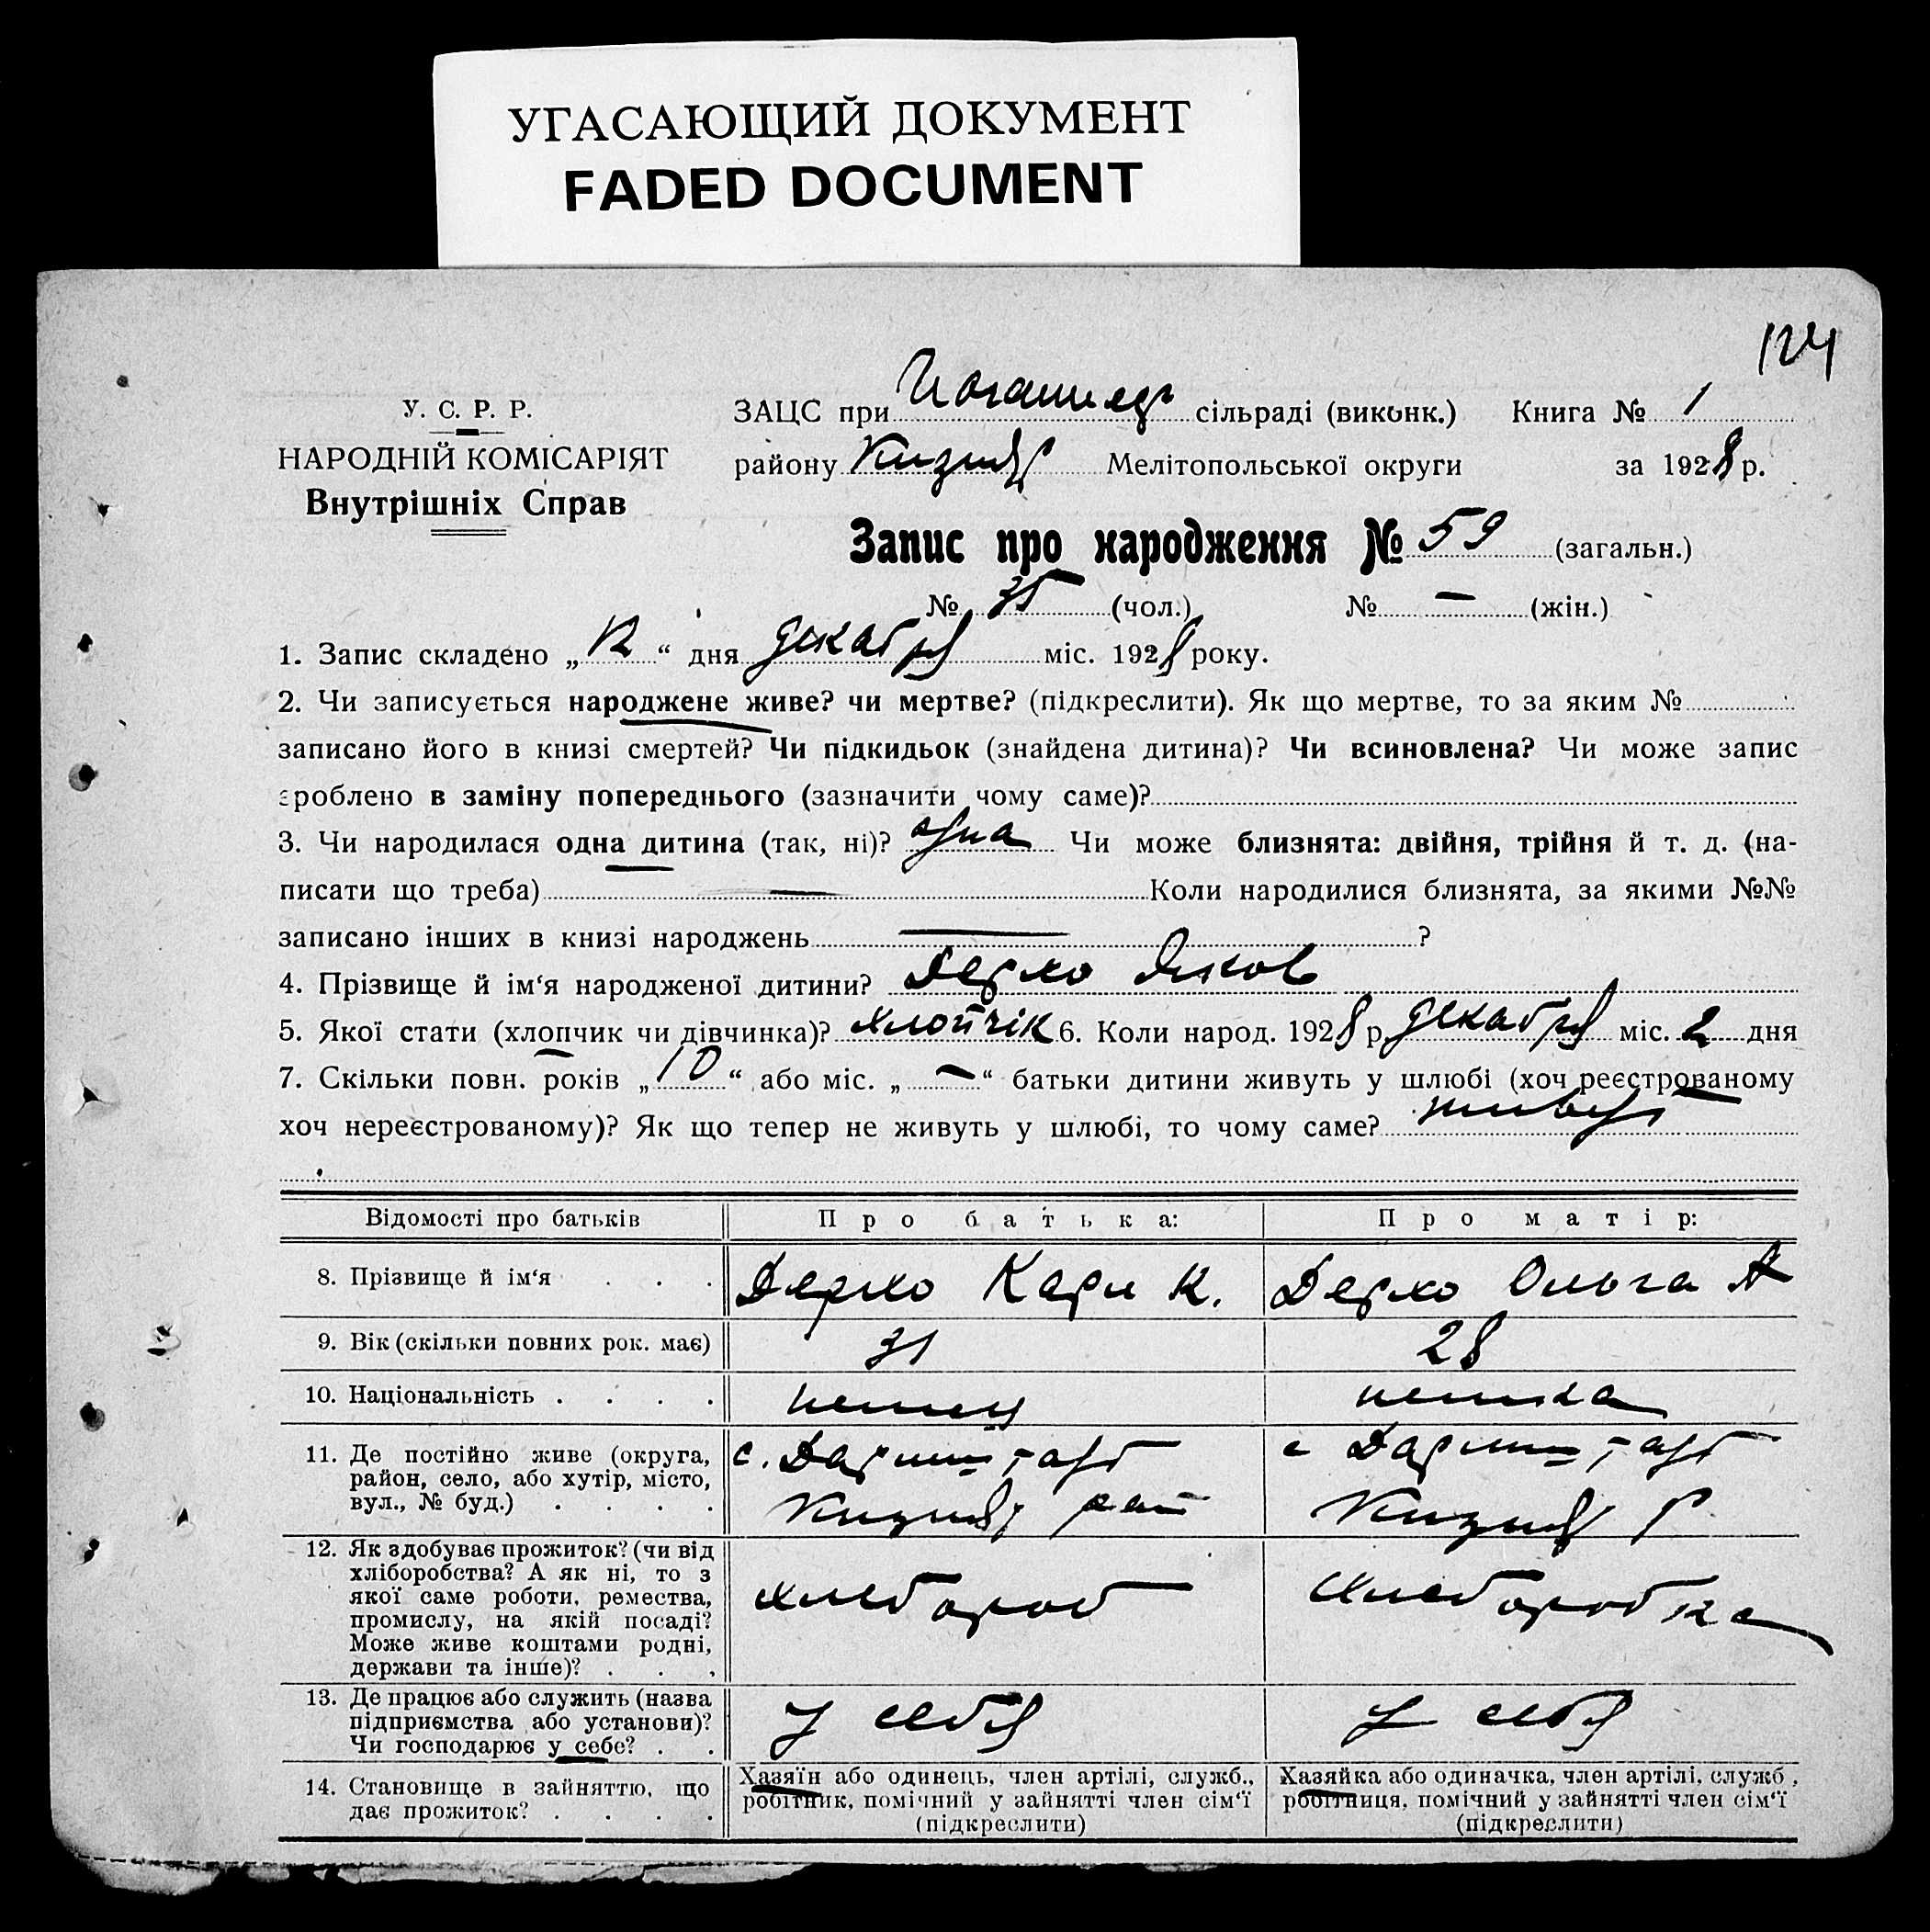 УГАСАЮЩИЙ ДОКУМЕНТ
FADED DOCUMENT
124
У. С. Р. Р.
НАРОДНІЙ КОМІСАРІЯТ
Внутрішніх Справ
ЗАЦС при сільраді (виконк.) Книга № 1
району Мелітопольської округи за 1928 р.
Запис про народження № 59 (загальн.)
№ 35 (чол.) № — (жін.)
1. Запис складено „12“ дня декабря міс. 1928 року.
2. Чи записується народжене живе? чи мертве? (підкреслити). Як що мертве, то за яким №
записано його в книзі смертей? Чи підкидьок (знайдена дитина)? Чи всиновлена? Чи може запис
зроблено в заміну попереднього (зазначити чому саме)?
3. Чи народилася одна дитина (так, ні)? одна Чи може близнята: двійня, трійня й т. д. (на-
писати що треба) — Коли народилися близнята, за якими №№
записано інших в книзі народжень — ?
4. Прізвище й ім‘я народженої дитини? Дерхо Яков
5. Якої стати (хлопчик чи дівчинка)? хлопчік 6. Коли народ. 1928 р. декабря міс. 2 дня
7. Скільки повн. років „10“ або міс. „—“ батьки дитини живуть у шлюбі (хоч реєстрованому
хоч нереєстрованому)? Як що тепер не живуть у шлюбі, то чому саме? живут
Відомості про батьків Про батька: Про матір:
8. Прізвище й ім‘я . . . Дерхо Карл К. Дерхо Ольга А
9. Вік (скільки повних рок. має) 31 28
10. Національність . . . . немец немка
11. Де постійно живе (округа, с. Дармштадт с Дармштадт
район, село, або хутір, місто,
вул., № буд.) . . . . Кизияр рай Кизияр р
12. Як здобуває прожиток? (чи від
хліборобства? А як ні, то з
якої саме роботи, ремества, хлебороб хлеборобка
промислу, на якій посаді?
Може живе коштами родні,
держави та інше)? . . .
13. Де працює або служить (назва
підприємства або установи)? у себя у себя
Чи господарює у себе? . .
14. Становище в зайняттю, що Хазяїн або одинець, член артілі, служб., Хазяйка або одиначка, член артілі, служб.,
дає прожиток? . . . . робітник, помічний у зайнятті член сім‘ї робітниця, помічний у зайнятті член сім‘ї
(підкреслити) (підкреслити)